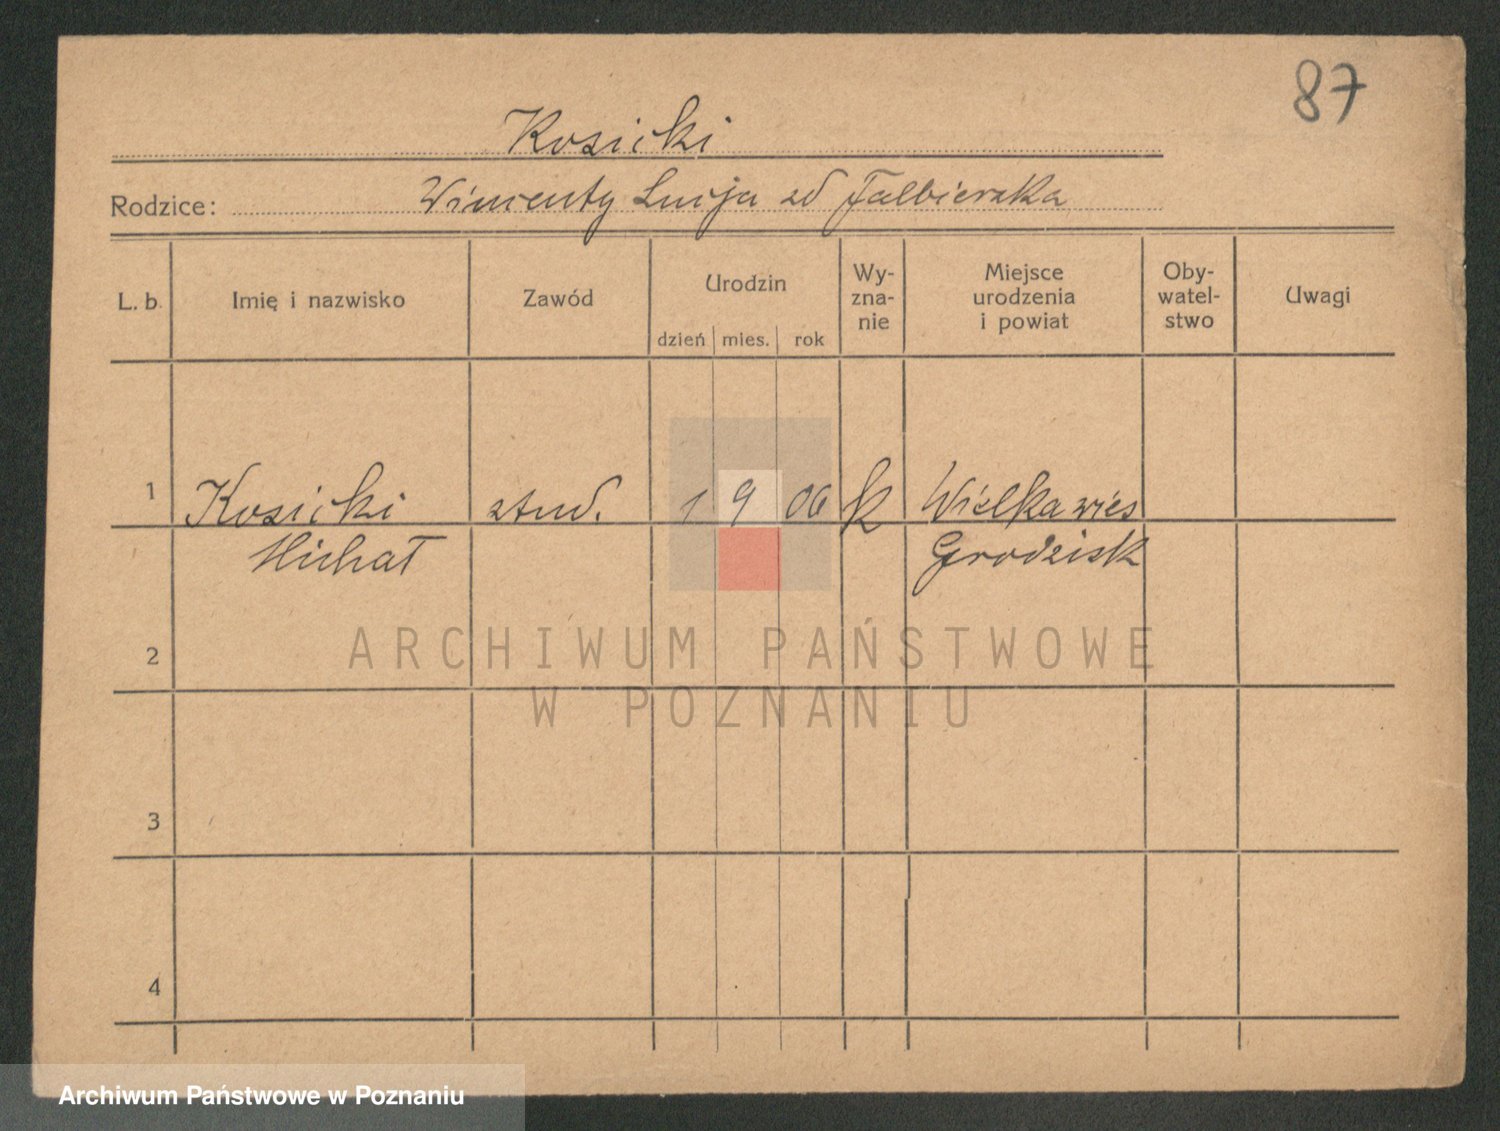 87
Kosicki
Rodzice: Wincenty Lucja zd Falbierska
L. b. Imię i nazwisko Zawód Urodzin Wy-zna-nie Miejsce urodzenia i powiat Oby-watel-stwo Uwagi
dzień mies. rok
1 Kosicki stud. 1 9 06 k Wielkawieś
Michał Grodzisk
2
ARCHIWUM PAŃSTWOWE
W POZNANIU
3
4
Archiwum Państwowe w Poznaniu